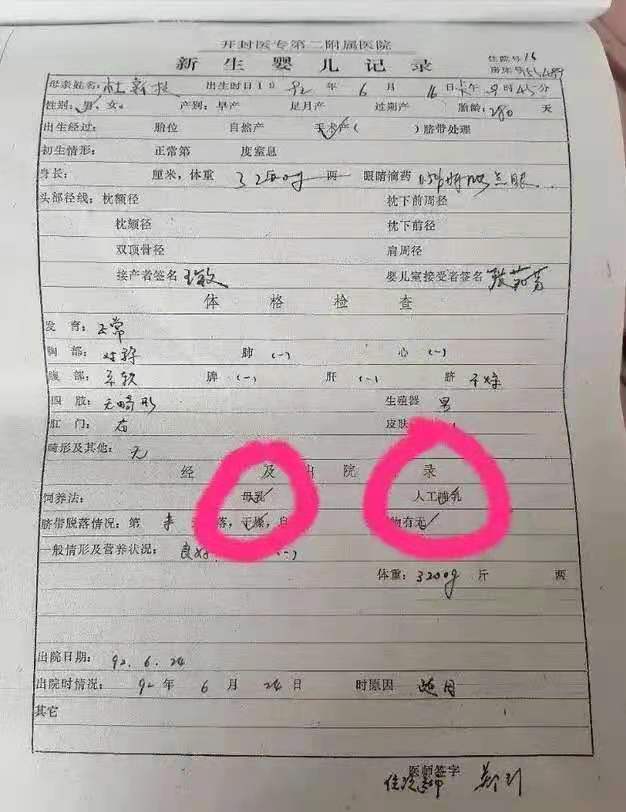 开封医专第二附属医院
新生婴儿记录
住院号16
病床号
母亲姓名:杜新枝 出生时日19 92年6月16日 午 时45分
性别:男、女。 产别:早产 足月产 过期产 胎龄:280天
出生经过: 胎位 自然产 手术产( )脐带处理
初生情形: 正常第 度窒息
身长: 厘米,体重 3200g 两 眼睛滴药
头部径线:枕额径 枕下前周径
枕颏径 枕下前径
双顶骨径 肩周径
接产者签名 婴儿室接受者签名
体格检查
发育:正常
胸部:对称 肺(-) 心(-)
腹部:平软 脾(-) 肝(-) 脐 干燥
四肢:无畸形 生殖器 男
肛门:有 皮肤
畸形及其他:无
经 及出院 录
饲养法: 母乳 人工哺乳
脐带脱落情况:第 未 落,干燥, 物有无
一般情形及营养状况:良好 (-)
体重:3200g 斤 两
出院日期:92.6.24
出院时情况:92年6月24日 时原因
其它
医师签字
住院医师